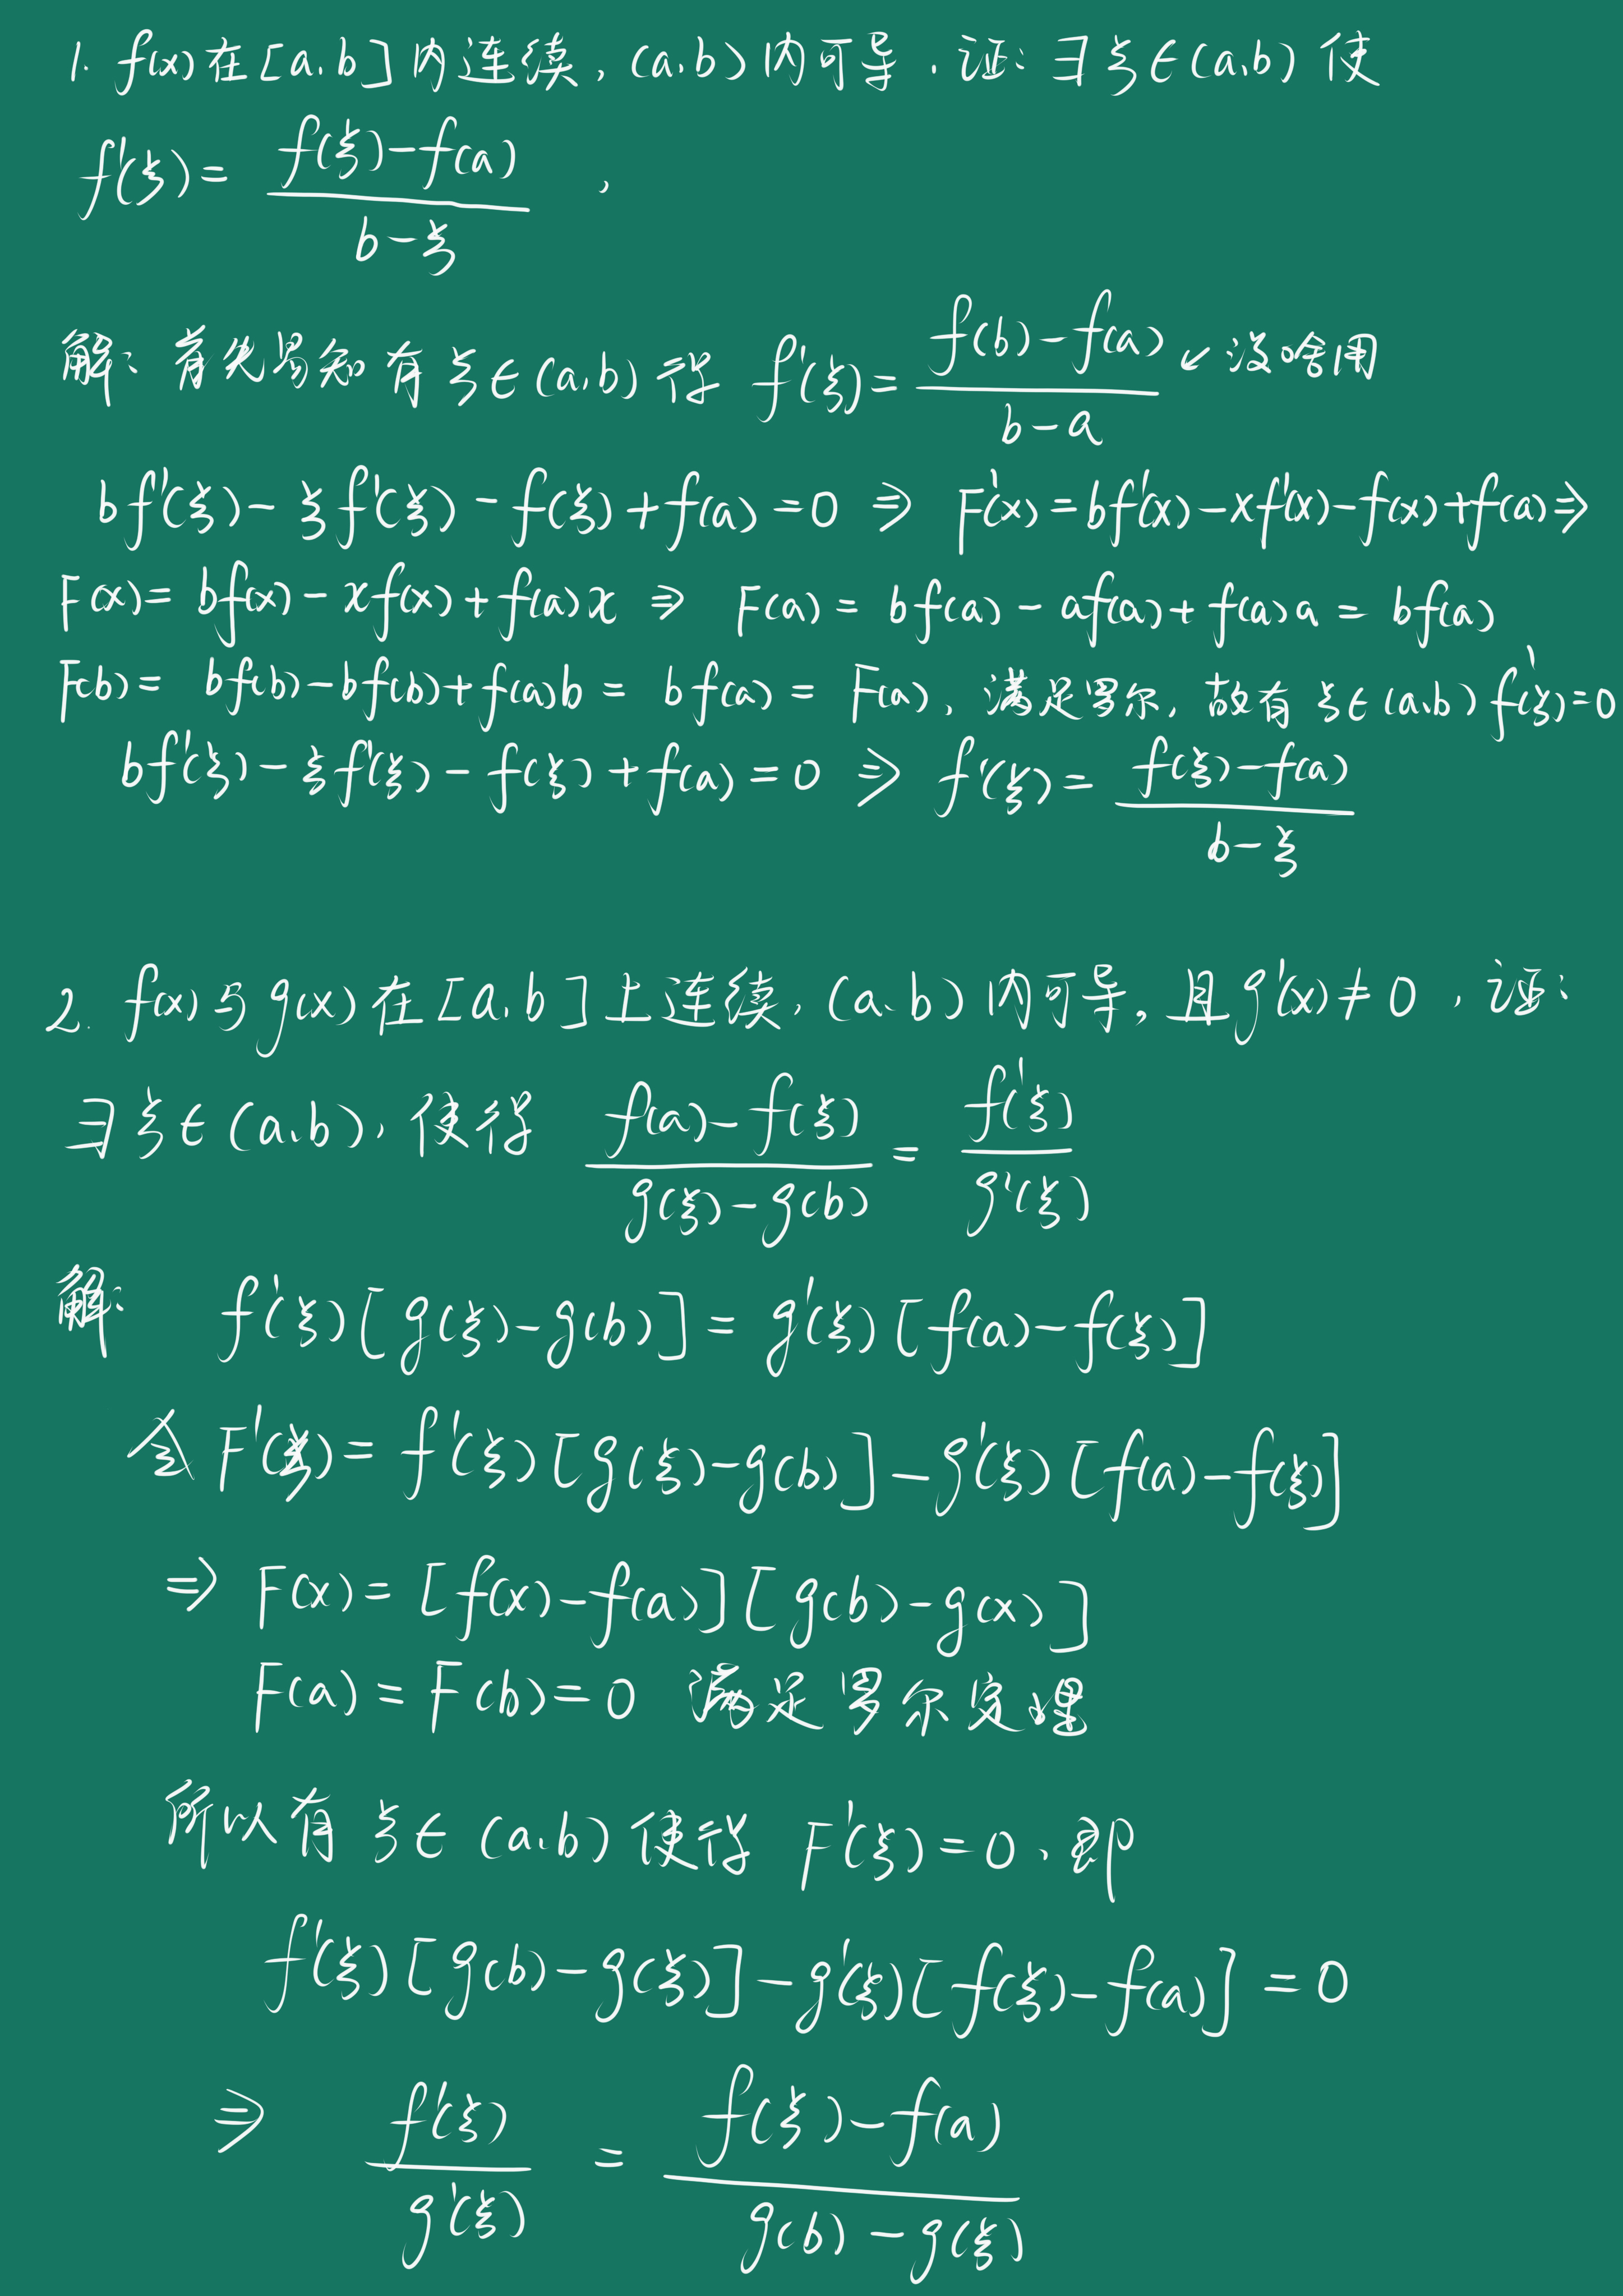 1. f(x)在[a,b]内连续,(a,b)内可导.证:∃ξ∈(a,b)使
f'(ξ)= (f(ξ)-f(a))/(b-ξ) ,
解:首先易知有ξ∈(a,b)得 f'(ξ)= (f(b)-f(a))/(b-a) ↙没啥用
bf'(ξ)-ξf'(ξ)-f(ξ)+f(a)=0 ⇒ F'(x)=bf'(x)-xf'(x)-f(x)+f(a)⇒
F(x)=bf(x)-xf(x)+f(a)x ⇒ F(a)=bf(a)-af(a)+f(a)a=bf(a)
F(b)=bf(b)-bf(b)+f(a)b=bf(a)=F(a),满足罗尔,故有ξ∈(a,b)f'(ξ)=0
bf'(ξ)-ξf'(ξ)-f(ξ)+f(a)=0 ⇒ f'(ξ)= (f(ξ)-f(a))/(b-ξ)
2. f(x)与g(x)在[a,b]上连续,(a,b)内可导,且g'(x)≠0,证:
∃ξ∈(a,b),使得 (f(a)-f(ξ))/(g(ξ)-g(b)) = f'(ξ)/g'(ξ)
解: f'(ξ)[g(ξ)-g(b)]=g'(ξ)[f(a)-f(ξ)]
令F'(ξ)=f'(ξ)[g(ξ)-g(b)]-g'(ξ)[f(a)-f(ξ)]
⇒ F(x)=[f(x)-f(a)][g(b)-g(x)]
F(a)=F(b)=0 满足罗尔定理
所以有ξ∈(a,b)使得 F'(ξ)=0,即
f'(ξ)[g(b)-g(ξ)]-g'(ξ)[f(ξ)-f(a)]=0
⇒ f'(ξ)/g'(ξ) = (f(ξ)-f(a))/(g(b)-g(ξ))